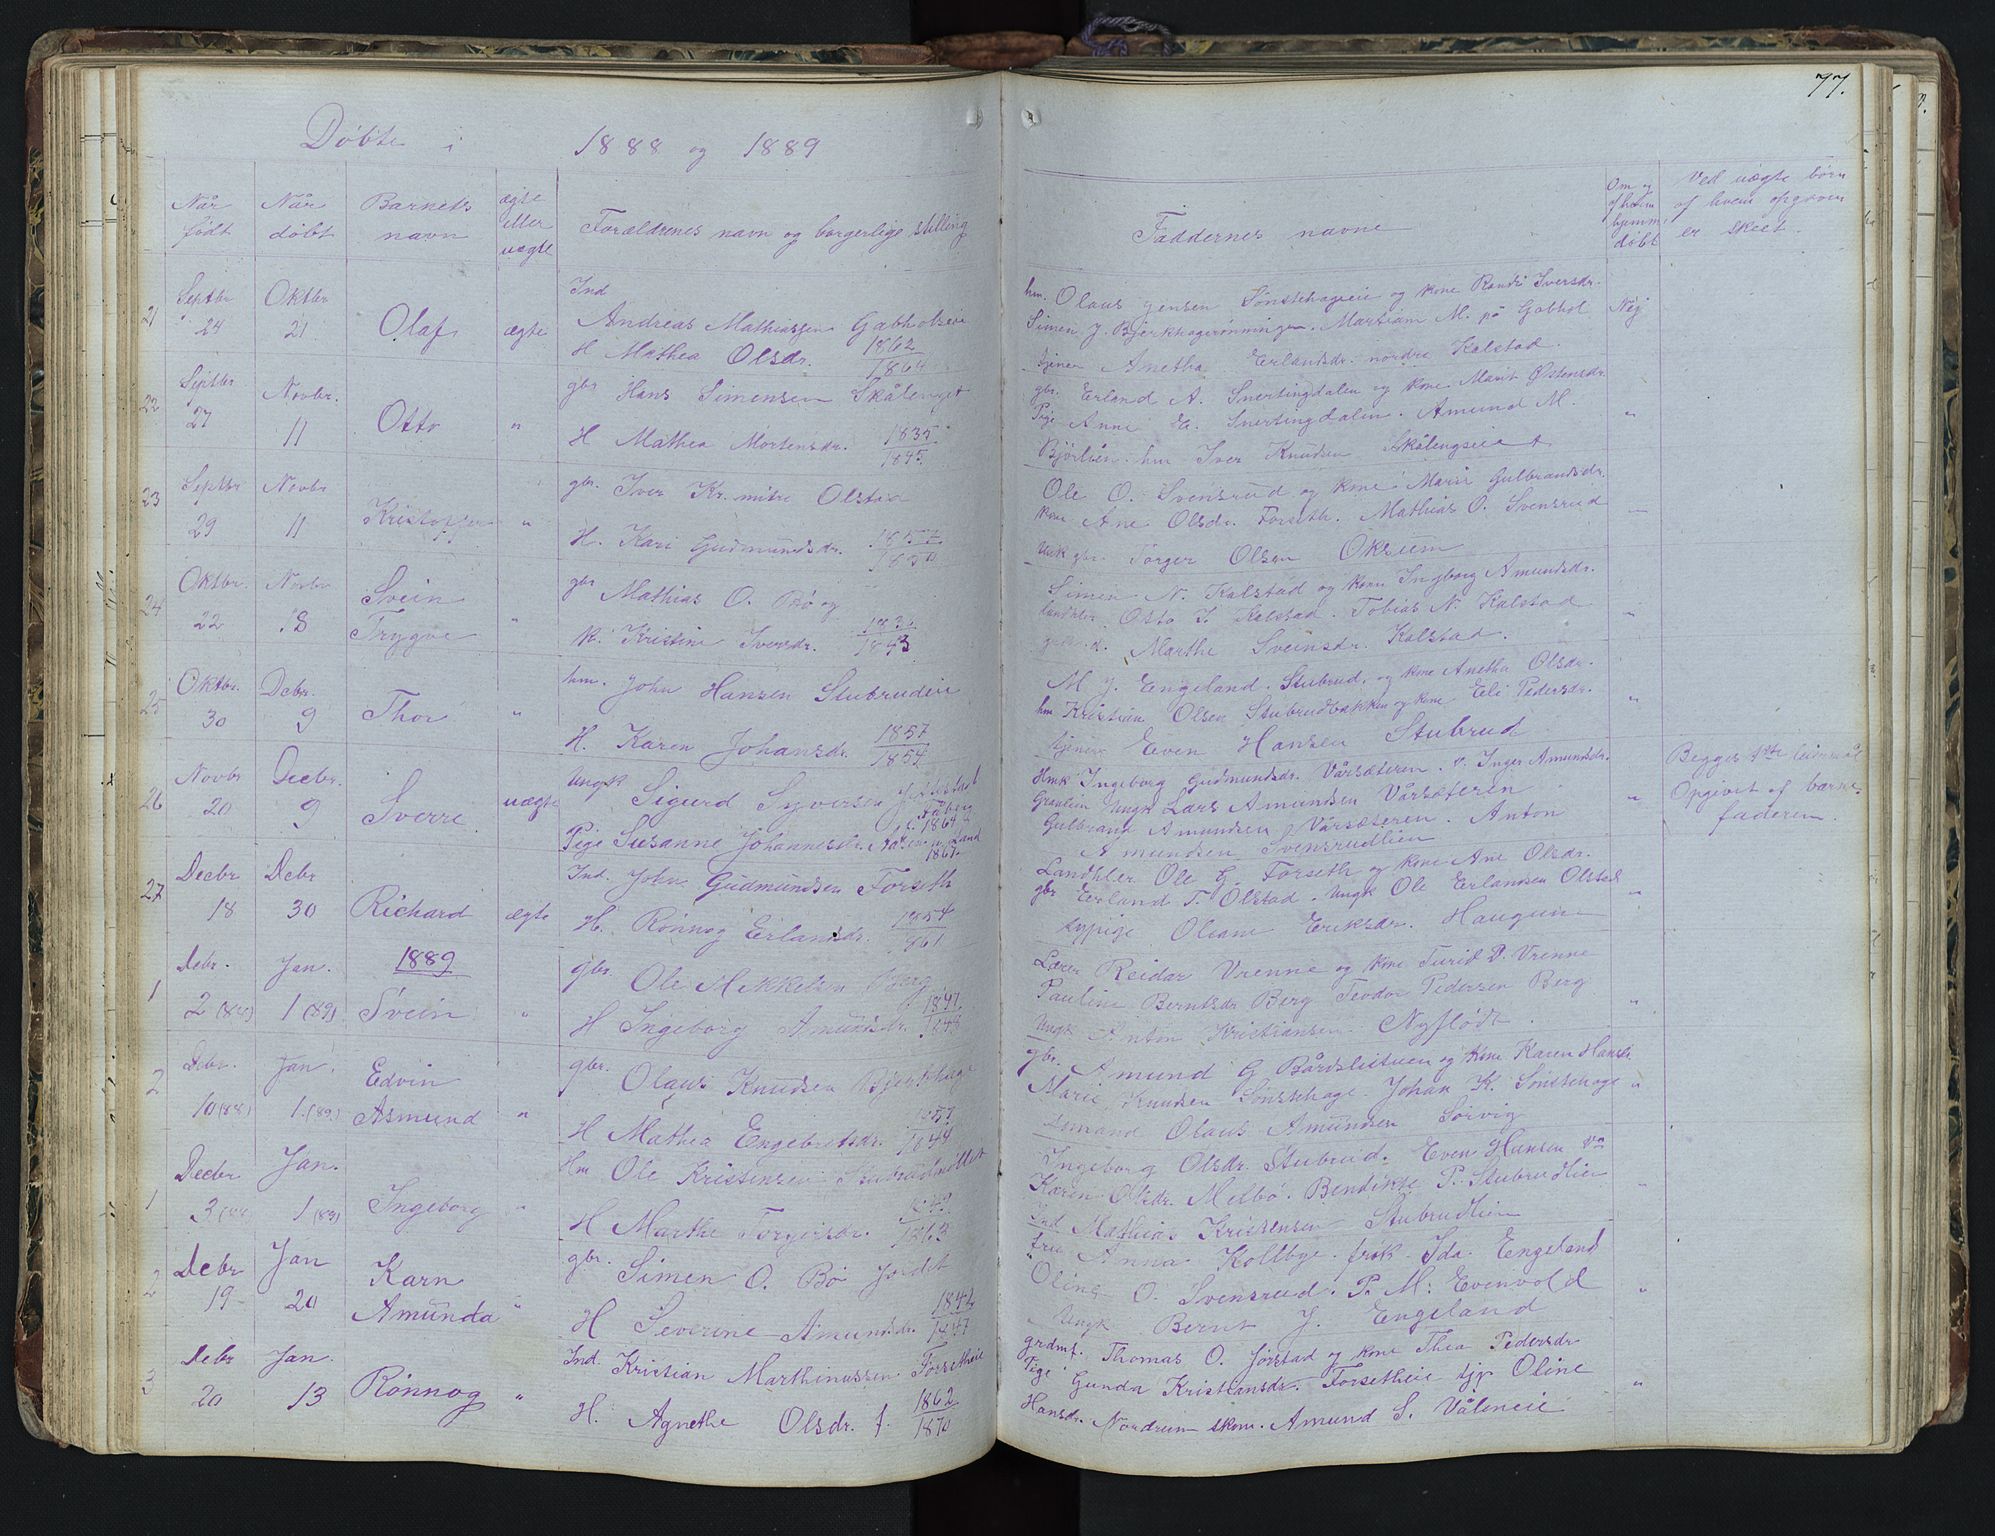 77.
Døbte i 1888 og 1889
Når født
Når døbt
Barnets navn
ægte eller uægte
Forældrenes navn og borgerlige stilling
Faddernes navne
Om og af hvem hjemmedøbt
Ved uægte børn af hvem opgaven er skeet.
21 Septbr 24 Oktbr 21 Olaf ægte
Ind Andreas Mathiassen Gabholseie
H Mathea Olsdr. 1862 1864
hm. Olaus Jensen Sønstehageeie og kone Randi Iversdr.
Simen J. Bjerkhagerønningen. Martiam M. på Gabhol Nej
tjener Anetha Erlandsdr. nordre Kalstad.
22 Septbr. 27 Novbr. 11 Otto "
gbr Hans Simensen Skålenget
H Mathea Mortensdr. 1835 1845.
gbr. Erland A. Snertingdalen og kone Marit Østensdr.
Pige Anne E. Snertingdalen. Amund M. "
Bjørlien. hm Iver Knudsen Skålengseie
23 Septbr 29 Novbr 11 Kristoffer "
gbr. Iver Kr. mitre Olstad
H. Kari Gudmundsdr. 1857
Ole O. Svensrud og kone Marie Gulbrandsdr.
kone Ane Olsdr. Forseth. Mathias O. Svensrud
gbr. Torger Olsen
24 Oktbr. 22 Novbr 18 Svein Trygve "
gbr Mathias O. Bø og
k. Kristine Iversdr. 1843
Simen N. Kalstad og kone Ingborg Amundsdr.
landhlr. Otto I. Kalstad. Tobias N. Kalstad "
Marthe Sveinsdr. Kalstad.
25 Oktbr. 30 Debr. 9 Thor "
hm. John Hansen Stubrudeie
H. Karen Johansdr. 1857 1854
M J. Engeland. Stubrud. og kone Anetha Olsdr.
hm Kristian Olsen Stubrudbakken og kone Eli Pedersdr. "
tjener Even Hansen Stubrud
26 Novbr 20 Decbr. 9 Sverre uægte
Ungk Sigurd Syversen Fåberg 1864
Pige Susanne Johannesdr. Land 1867.
Hmk Ingeborg Gudmundsdr. Vårsæteren. v. Inger Amundsdr.
Graulien Ungk Lars Amundsen Vårsæteren "
Gulbrand Amundsen Vårsæteren. Anton
Amundsen Svensrudlien
Begges 1ste leiermål
Opgivet af barne-
faderen.
27 Decbr 18 Debr 30 Richard ægte
Ind. John Gudmundsen Forseth
H. Rønnog Erlandsdr. 1854 1861
Landhlr Ole G. Forseth og kone Ane Olsdr.
gbr Erland T. Olstad. Ungk Ole Erlandsen Olstad "
Oliane Eriksdr. Haugen
1889
1 Debr. 2 (88) Jan. 1 (89) Svein "
gbr. Ole Mikkelsen Berg
H Ingeborg Amundsdr. 1847 1848
Lærer Reidar Vrenne og kone Turid D. Vrenne
Pauline Berntsdr Berg Teodor Pedersen Berg "
Ungk Anton Kristiansen Nyflødt.
2 Debr. 10 (88) Jan. 1 (89) Edvin Asmund "
gbr. Olaus Knudsen Bjerkhage
H Mathea Engebretsdr. 1857
gbr. Amund G Bårdslistuen og kone Karen Hansdr.
Marie Knudsen Sønstehage. Johan K. Sønstehage "
Olaus Amundsen Sorvig
1 Decbr 3 (88) Jan. 1 (89) Ingeborg "
Hm Ole Kristensen
H Marthe Torgersdr. 1863
Ingeborg Olsdr. Stubrud. Even Hansen
Karen Olsdr. Melbø. Bendikte P. Stubrudlien "
Ind Mathias Kristensen Stubrudlien
2 Debr 19 Jan 20 Karn Amunda "
gbr. Simen O. Bø Jordet
H Severine Amundsdr. 1842 1847
frue Anna Kolbye. frøk. Ida Engeland
Oline O. Svensrud. P. M. Evenvold "
Ungk Bernt J. Engeland
3 Debr 20 Jan. 13 Rønnog "
Ind. Kristian Marthinussen Forsetheie
H. Agnethe Olsdr. f. 1862 1870
grdmf. Thomas O. Jørstad og kone Thea Pedersdr
Pige Gunda Kristiansdr. Forsetheie tjp Oline "
Hansdr. Nordrum skom. Amund S. Våleneie